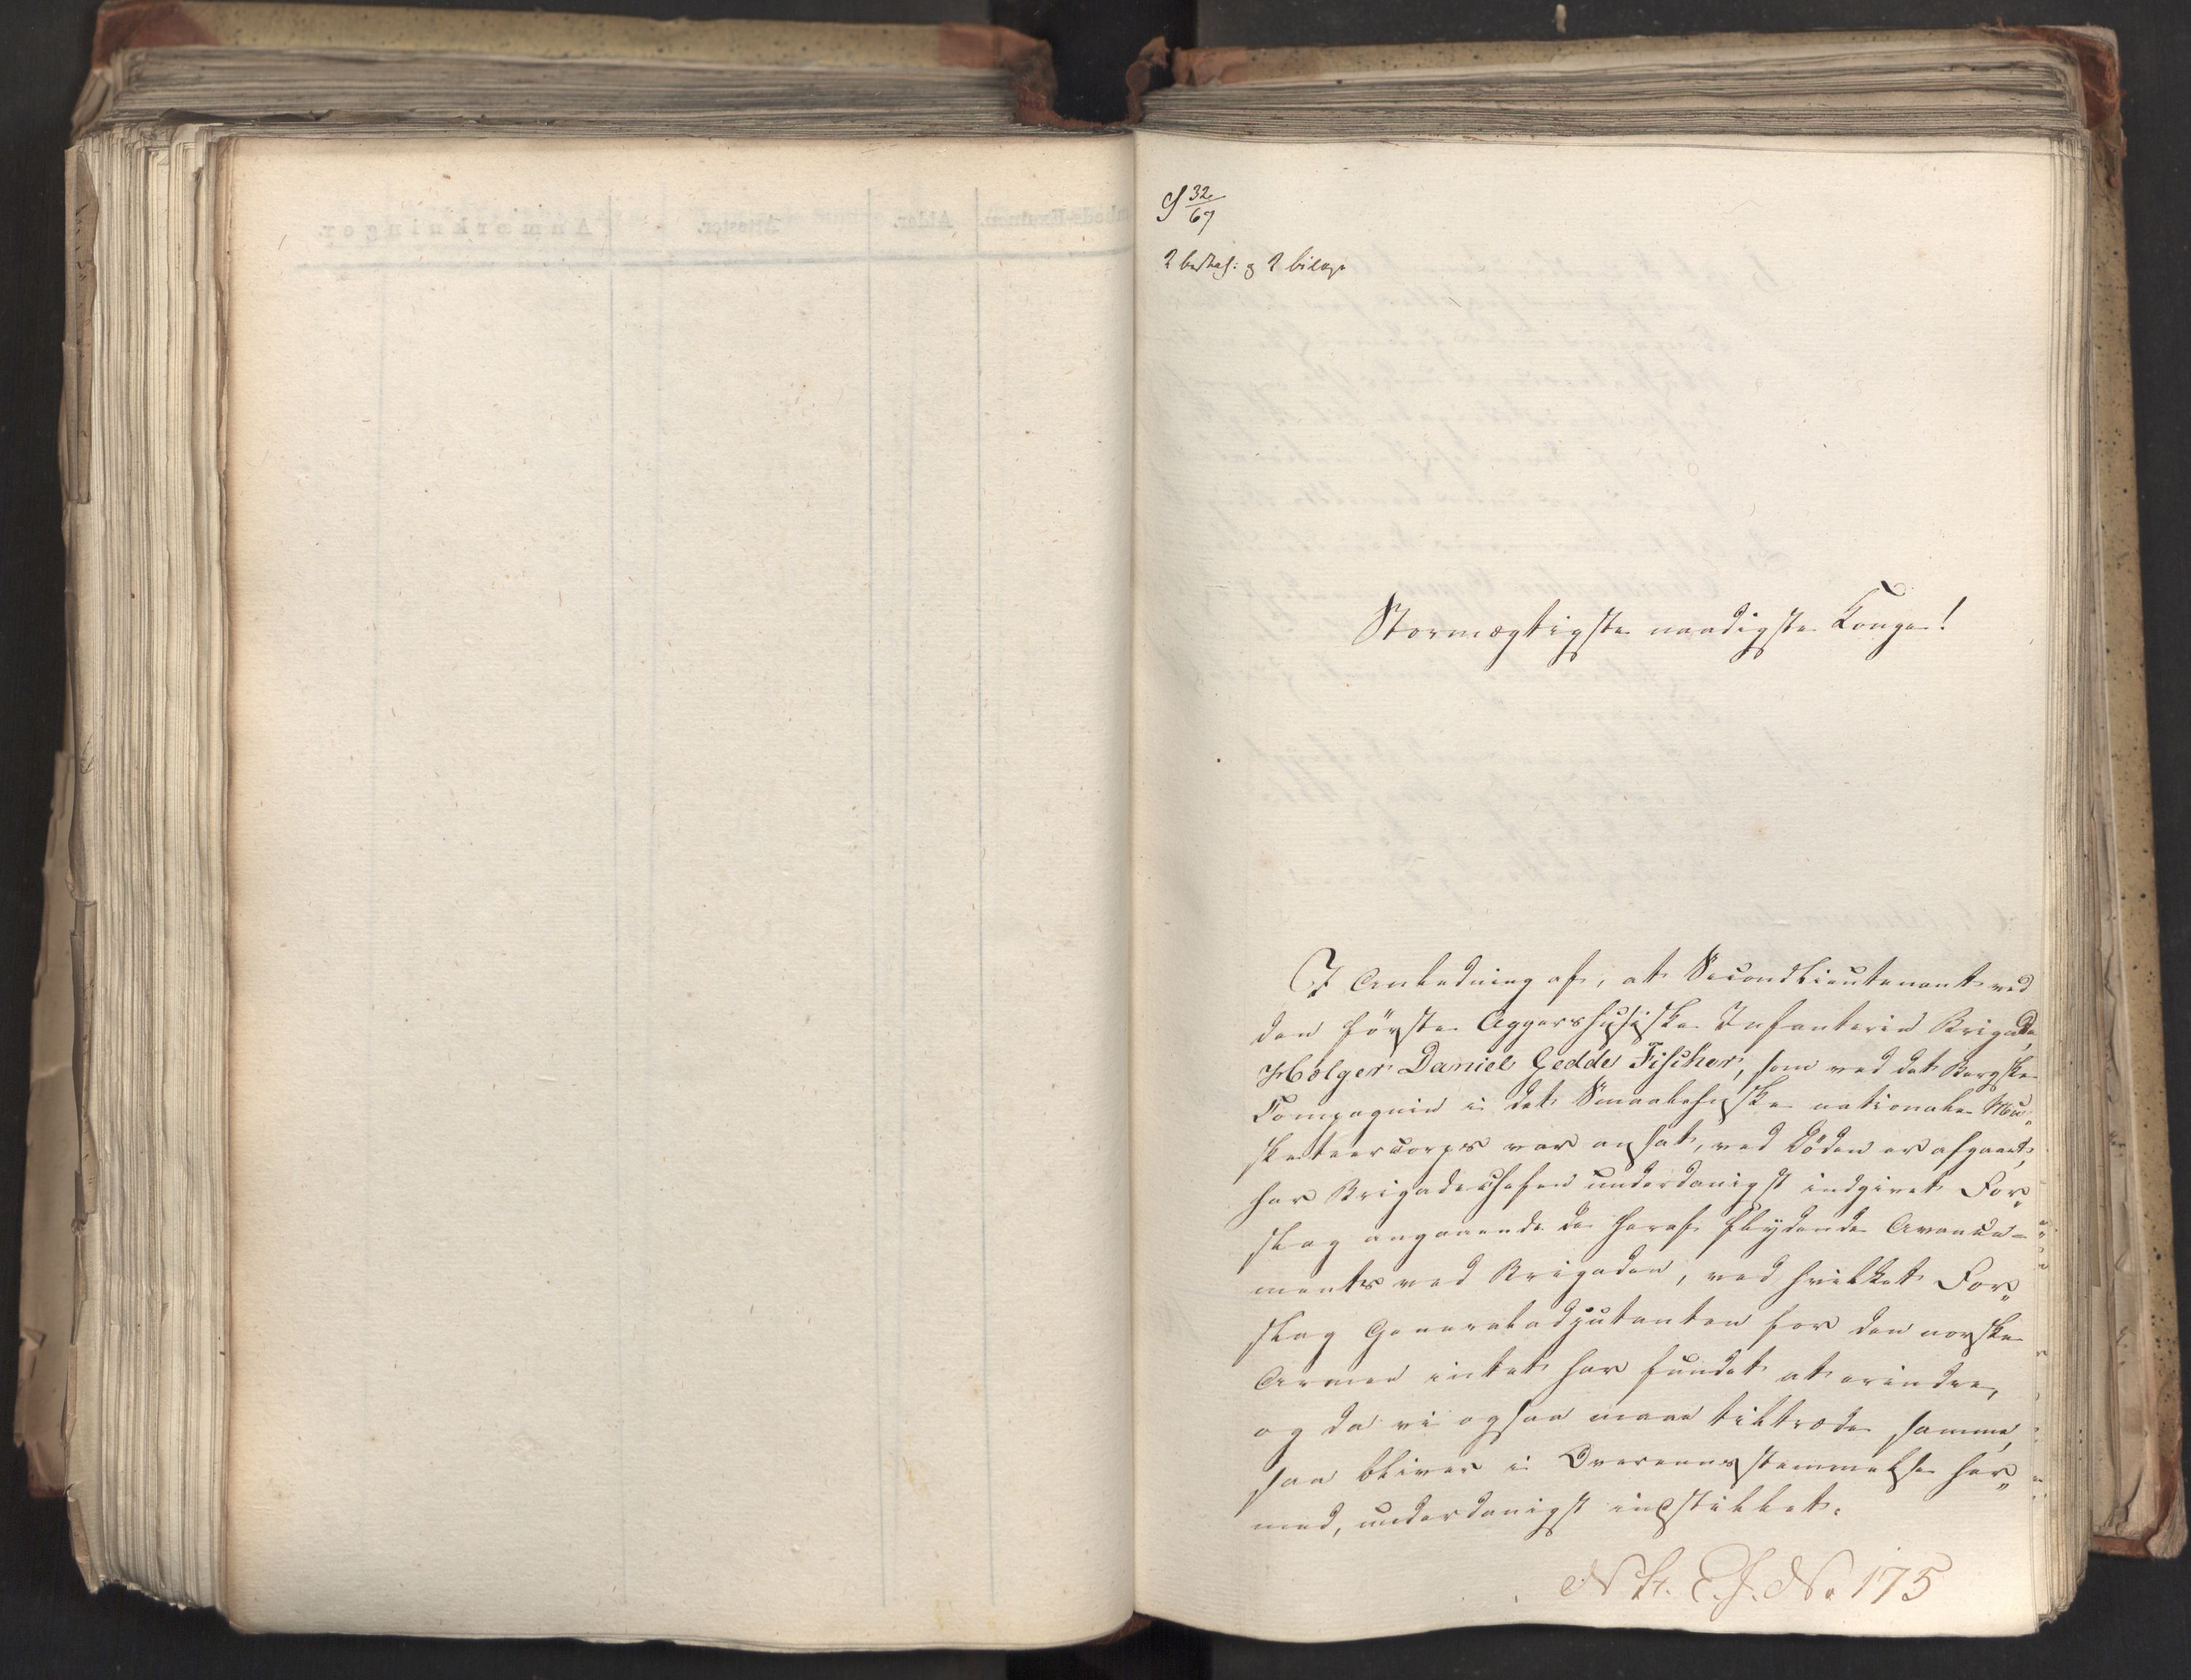 32/67
2 bilage
Stormægtigste naadigste Konge!
I Anledning af, at Secondlieutenant ved
den første Aggershusiske Infanterie Brigade,
Holger Daniel Gedde Fischer, som ved det Bergske
Compagnie i det Smaalehnske nationale Mu„
sketeercorps var ansat, ved Døden er afgaaet,
har Brigadechefen underdanigst indgivet For„
slag angaaende de heraf flydende Avance-
ments ved Brigaden, ved hvilket For„
slag Generaladjutanten for den norske
Armee intet har fundet at erindre,
og da vi ogsaa maae tiltræde samme,
saa bliver i Overeensstemmelse her„
med, underdanigst indstillet:
No 175